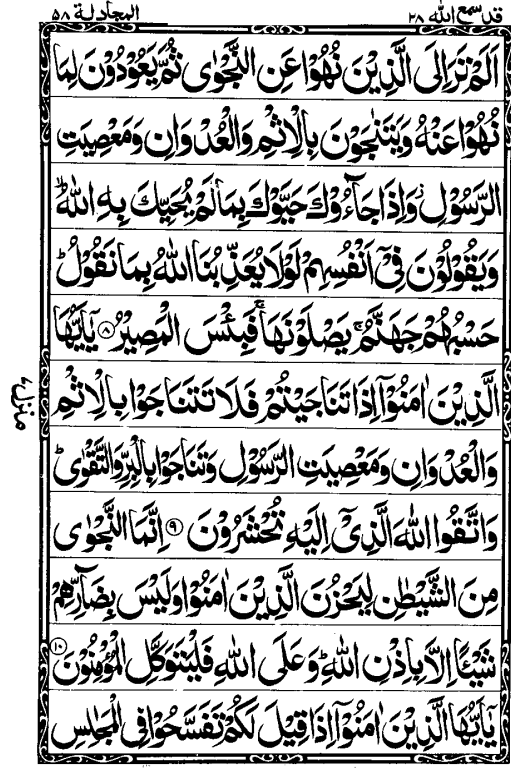 قد سمع الله ٢٨
المجادلة ٥٨
اَلَمْ تَرَ اِلَى الَّذِيْنَ نُهُوْا عَنِ النَّجْوٰى ثُمَّ يَعُوْدُوْنَ لِمَا
نُهُوْا عَنْهُ وَيَتَنٰجَوْنَ بِالْاِثْمِ وَالْعُدْوَانِ وَمَعْصِيَتِ
الرَّسُوْلِ ؗ وَاِذَا جَآءُوْكَ حَيَّوْكَ بِمَا لَمْ يُحَيِّكَ بِهِ اللّٰهُ ۙ
وَيَقُوْلُوْنَ فِيْۤ اَنْفُسِهِمْ لَوْلَا يُعَذِّبُنَا اللّٰهُ بِمَا نَقُوْلُ ؕ
حَسْبُهُمْ جَهَنَّمُ ۚ يَصْلَوْنَهَا ۚ فَبِئْسَ الْمَصِيْرُ ۝٨ يٰۤاَيُّهَا
الَّذِيْنَ اٰمَنُوْۤا اِذَا تَنَاجَيْتُمْ فَلَا تَتَنَاجَوْا بِالْاِثْمِ
وَالْعُدْوَانِ وَمَعْصِيَتِ الرَّسُوْلِ وَتَنَاجَوْا بِالْبِرِّ وَالتَّقْوٰى ؕ
وَاتَّقُوا اللّٰهَ الَّذِيْۤ اِلَيْهِ تُحْشَرُوْنَ ۝٩ اِنَّمَا النَّجْوٰى
مِنَ الشَّيْطٰنِ لِيَحْزُنَ الَّذِيْنَ اٰمَنُوْا وَلَيْسَ بِضَآرِّهِمْ
شَيْـًٔا اِلَّا بِاِذْنِ اللّٰهِ ؕ وَعَلَى اللّٰهِ فَلْيَتَوَكَّلِ الْمُؤْمِنُوْنَ ۝١٠
يٰۤاَيُّهَا الَّذِيْنَ اٰمَنُوْۤا اِذَا قِيْلَ لَكُمْ تَفَسَّحُوْا فِى الْمَجٰلِسِ
منزل ٧